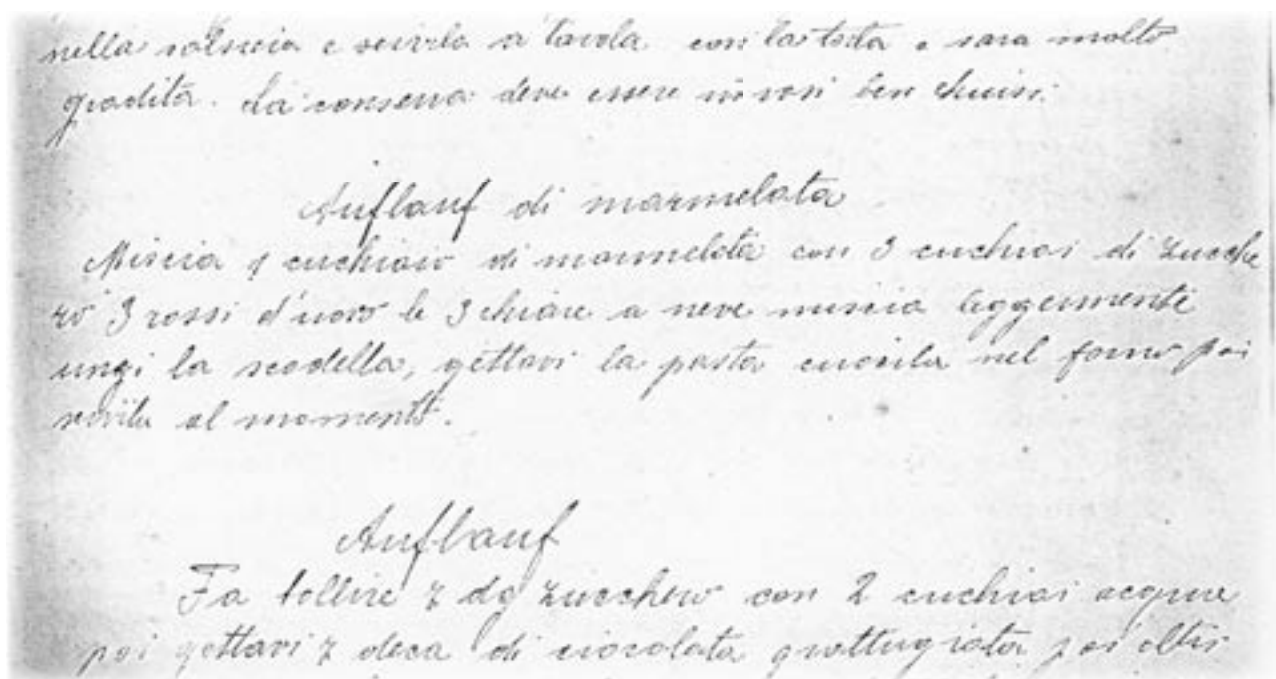 nella salsiera e servirla a tavola con la torta e sara molto
gradita. La conserva deve essere in vasi ben chiusi.
Auflauf di marmelata
Miscia 1 cuchiaio di marmelata con 3 cuchiai di zucche
ro 3 rossi d'uovo le 3 chiare a neve miscia leggermente
ungi la scodella, gettavi la pasta cuocila nel forno poi
servila al momento.
Auflauf
Fa bollire 7 dg zucchero con 2 cuchiai acqua
poi gettavi 7 deca di ciocolata grattugiata poi altri